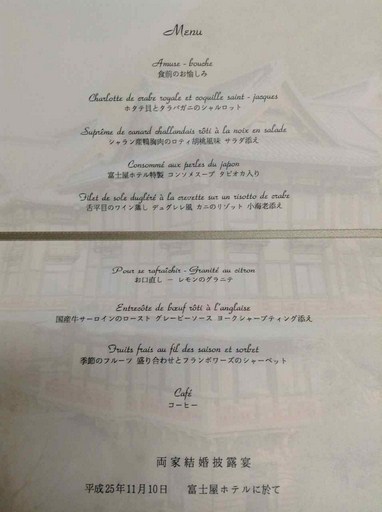 Menu
Amuse - bouche
食前のお愉しみ
Charlotte de crabe royale et coquille saint - jacques
ホタテ貝とタラバガニのシャルロット
Suprême de canard challandais rôti à la noix en salade
シャラン産鴨胸肉のロティ胡桃風味 サラダ添え
Consommé aux perles du japon
富士屋ホテル特製 コンソメスープ タピオカ入り
Filet de sole dugléré à la crevette sur un risotto de crabe
舌平目のワイン蒸し デュグレレ風 カニのリゾット 小海老添え
Pour se rafraîchir - Granité au citron
お口直し － レモンのグラニテ
Entrecôte de bœuf rôti à l'anglaise
国産牛サーロインのロースト グレービーソース ヨークシャープディング添え
Fruits frais au fil des saison et sorbet
季節のフルーツ 盛り合わせとフランボワーズのシャーベット
Café
コーヒー
両家結婚披露宴
平成25年11月10日 富士屋ホテルに於て